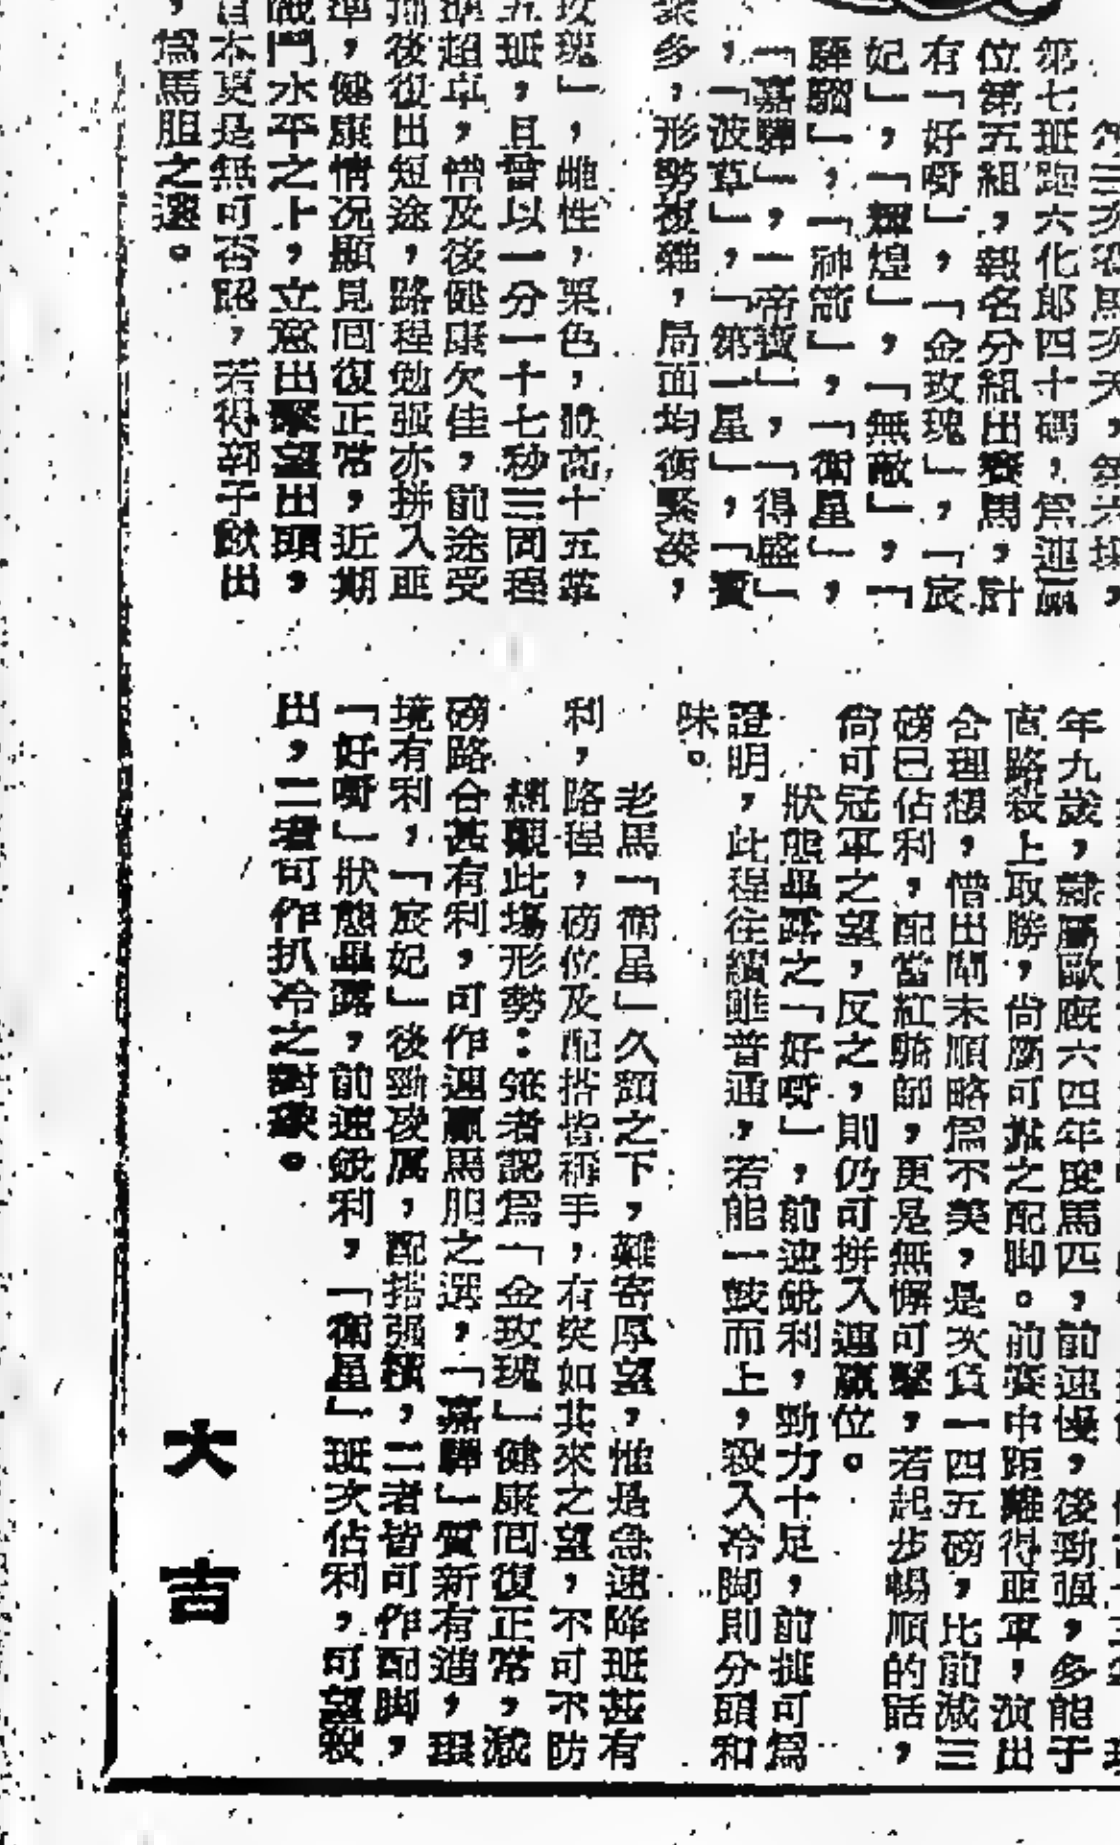 第七班跑六化郎四十碼，為連贏
位第五組，報名分組出賽馬，計
有「好嘢」，「金玫瑰」，「宸
妃」，「輝煌」，「無敵」，「
驊騮」，「神箭」，「衛星」，
「嘉驊」，「帝寶」，「得盛」
，「波草」，「第一星」，「寶
多，形勢複雜，局面均衡緊湊，
玫瑰」，雌性，栗色，體高十五掌
五班，且曾以一分一十七秒三同程
超卓，惜及後健康欠佳，前途受
後復出短途，路程勉强亦拼入亞
準，健康情况顯見囘復正常，近期
戰鬥水平之上，立意出擊望出頭，
更是無可否認，若得郭子猷出
，為馬胆之選。
年九歲，隸屬歐厩六四年度馬匹，前速慢，後勁强，多能于
直路殺上取勝，尙屬可撼之配脚。前賽中距離得亞軍，演出
合理想，惜出閘未順略為不美，是次負一四五磅，比前减三
磅已佔利，配當紅騎師，更是無懈可擊，若起步暢順的話，
尙可冠軍之望，反之，則仍可拼入連贏位。
狀態畢露之「好嘢」，前速銳利，勁力十足，前摭可為
證明，此程往績雖普通，若能一鼓而上，殺入冷脚則分頭和
味。
老馬「衛星」久頹之下，難寄厚望，惟是急速降班甚有
利，路程，磅位及配搭皆稱手，有突如其來之望，不可不防
總觀此塲形勢：筆者認為「金玫瑰」健康囘復正常，减
磅路合甚有利，可作連贏馬胆之選，「嘉驊」質新有進，環
境有利，「宸妃」後勁凌厲，配搭强橫，二者皆可作配脚，
「好嘢」狀態畢露，前速銳利，「衛星」班次佔利，可望殺
出，二者可作扒冷之對象。
大吉